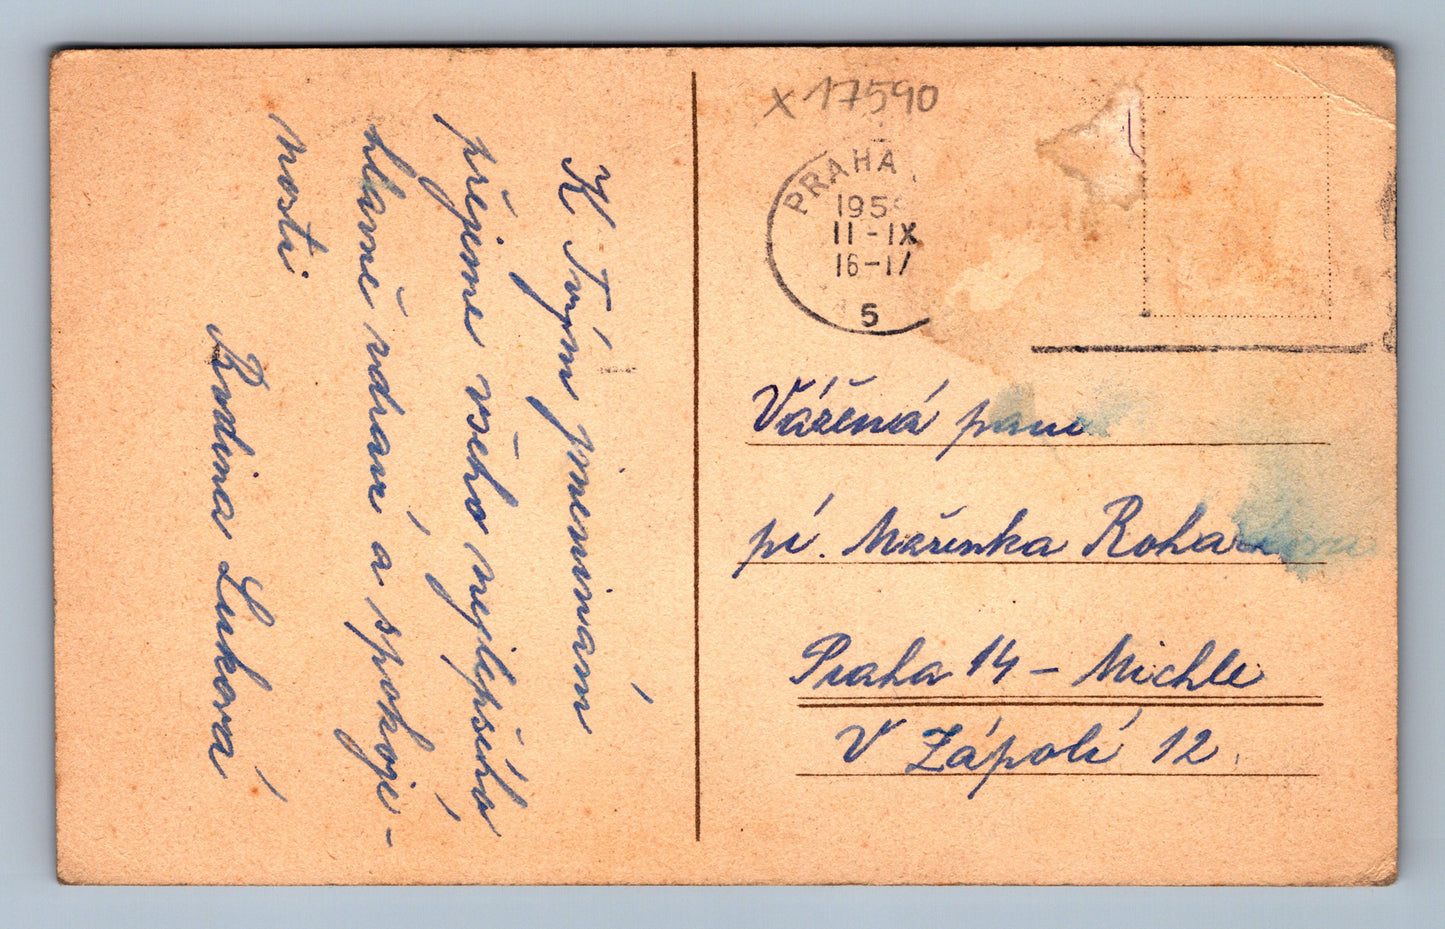 K Tvým jmeninám
přejeme všeho nejlepšího
hlavně zdraví a spokoje-
nosti
Rodina Luková
x 17590
PRAHA
195
11-IX
16-17
5
Vážená paní
pí. Mařenka
Praha 14 - Michle
V Zápolí 12.